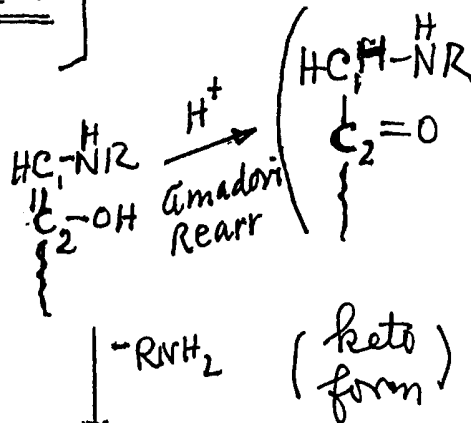 H
HC₁H-NR
C₂=O
H⁺
Amadori
Rearr
H
HC₁-NR
C₂-OH
-RNH₂
(keto
form)